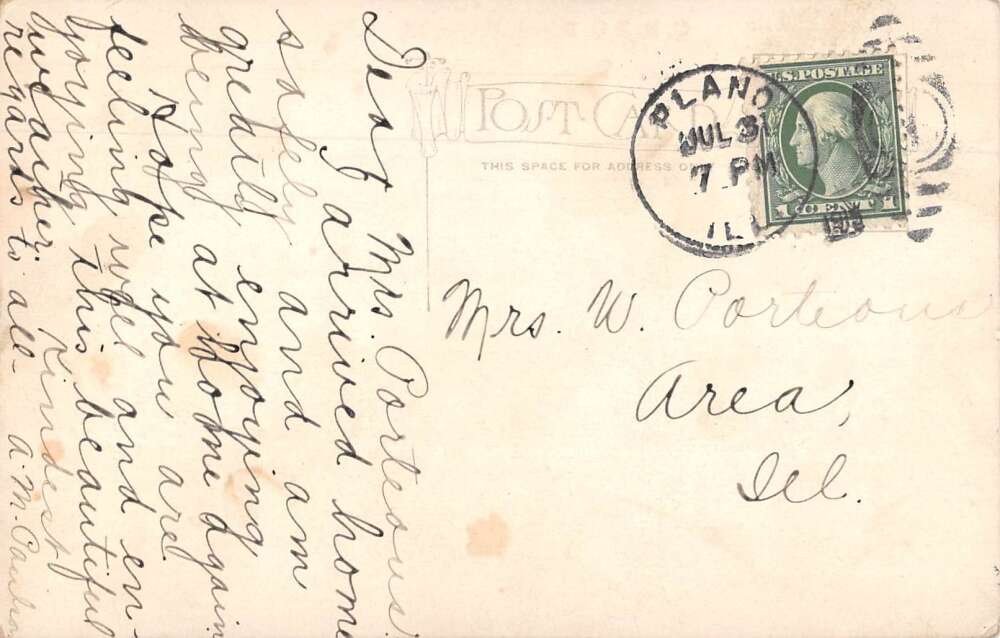 POST CARD
THIS SPACE FOR ADDRESS
PLANO
JUL 31
7 PM
ILL
U.S. POSTAGE
1 CENT 1
Mrs. W. Porteous
Area,
Ill.
Dear Mrs. Porteous
I arrived home
safely and am
greatly enjoying
being at home again
Hope you are
feeling well and en-
joying this beautiful
weather. Kindest
regards to all - A. M.